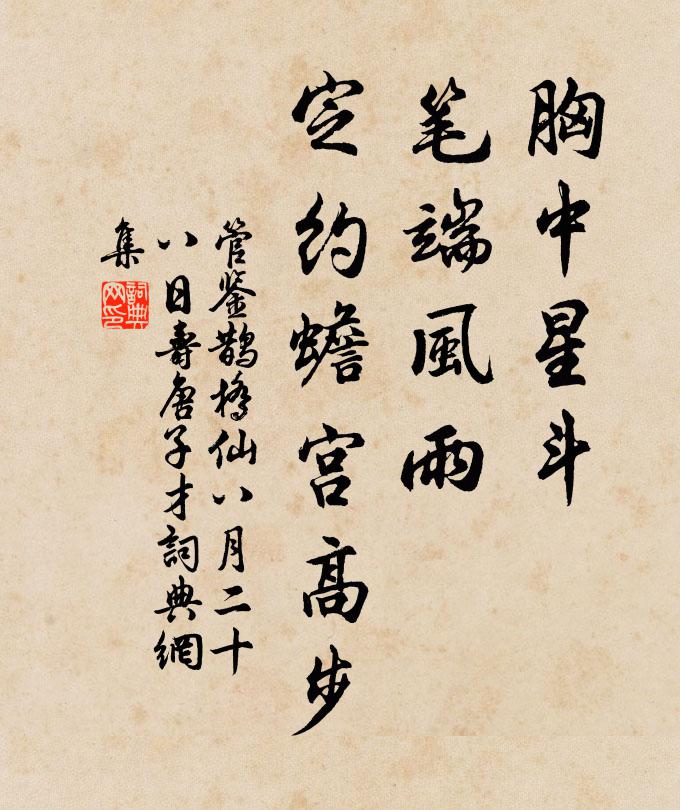 胸中星斗
笔端風雨
定约蟾宫高步
管鉴鵲橋仙八月二十
八日壽唐子才詞典網
集
詞典
网印